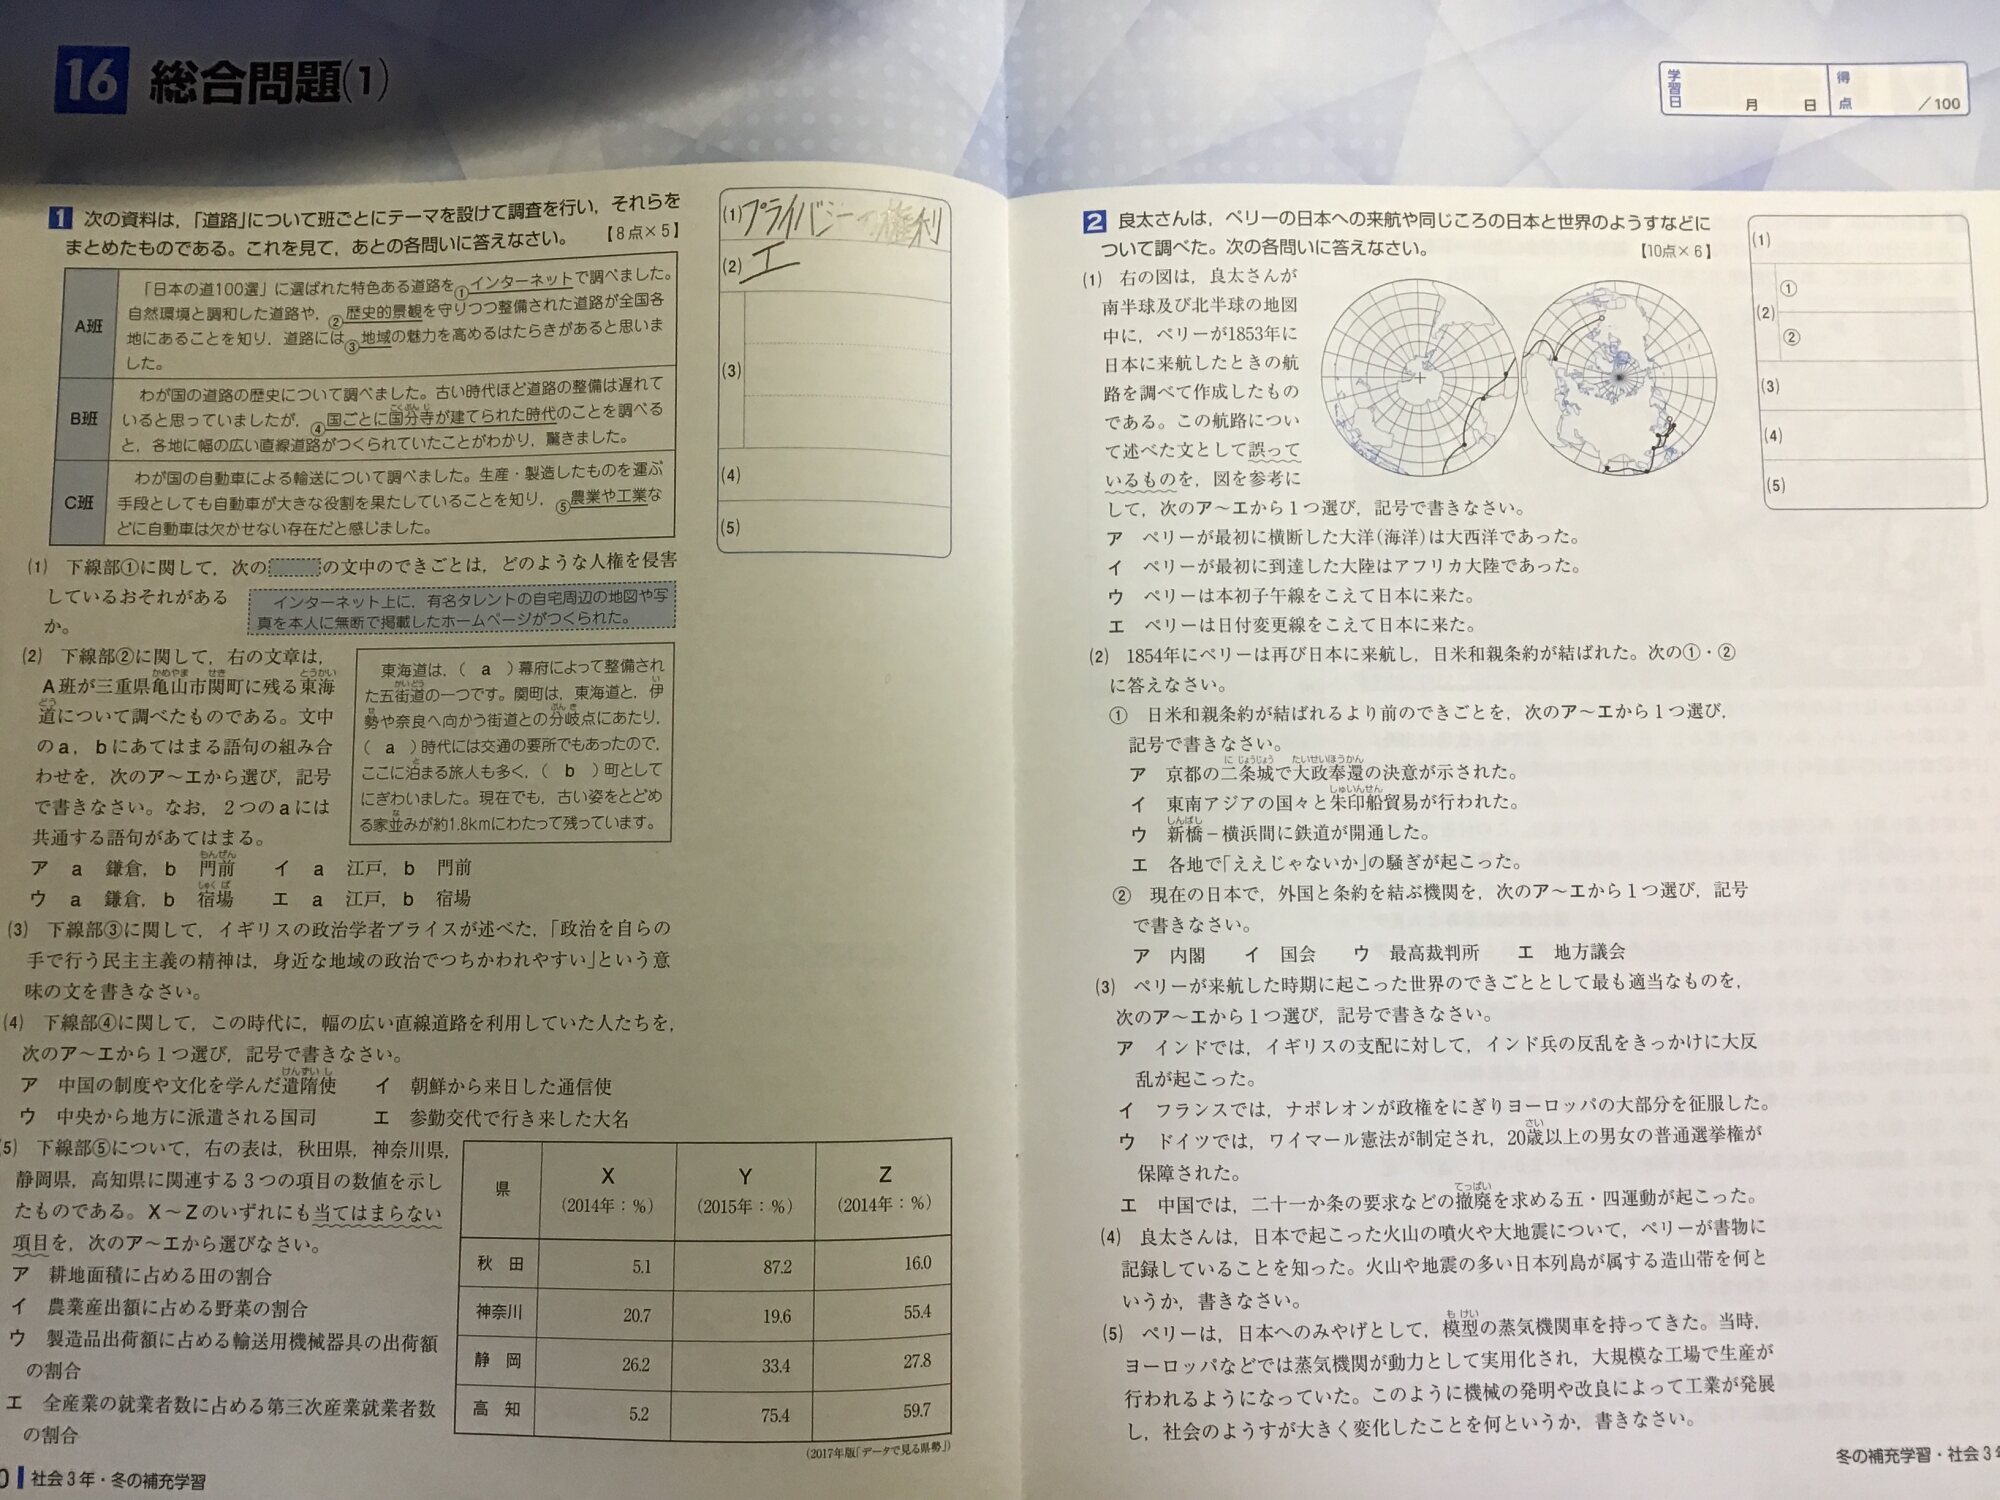 16 総合問題(1)
1 次の資料は，「道路」について班ごとにテーマを設けて調査を行い，それらを
まとめたものである。これを見て，あとの各問いに答えなさい。 【8点×5】
A班
「日本の道100選」に選ばれた特色ある道路を①インターネットで調べました。
自然環境と調和した道路や，②歴史的景観を守りつつ整備された道路が全国各
地にあることを知り，道路には③地域の魅力を高めるはたらきがあると思いま
した。
B班
わが国の道路の歴史について調べました。古い時代ほど道路の整備は遅れて
いると思っていましたが，④国ごとに国分寺が建てられた時代のことを調べる
と，各地に幅の広い直線道路がつくられていたことがわかり，驚きました。
C班
わが国の自動車による輸送について調べました。生産・製造したものを運ぶ
手段としても自動車が大きな役割を果たしていることを知り，⑤農業や工業な
どに自動車は欠かせない存在だと感じました。
(1) 下線部①に関して，次の の文中のできごとは，どのような人権を侵害
しているおそれがある
か。
インターネット上に，有名タレントの自宅周辺の地図や写
真を本人に無断で掲載したホームページがつくられた。
(2) 下線部②に関して，右の文章は，
A班が三重県亀山市関町に残る東海
道について調べたものである。文中
のa，bにあてはまる語句の組み合
わせを，次のア～エから選び，記号
で書きなさい。なお，2つのaには
共通する語句があてはまる。
東海道は，( a )幕府によって整備され
た五街道の一つです。関町は，東海道と，伊
勢や奈良へ向かう街道との分岐点にあたり，
( a )時代には交通の要所でもあったので，
ここに泊まる旅人も多く，( b )町として
にぎわいました。現在でも，古い姿をとどめ
る家並みが約1.8kmにわたって残っています。
ア a 鎌倉，b 門前 イ a 江戸，b 門前
ウ a 鎌倉，b 宿場 エ a 江戸，b 宿場
(3) 下線部③に関して，イギリスの政治学者ブライスが述べた，「政治を自らの
手で行う民主主義の精神は，身近な地域の政治でつちかわれやすい」という意
味の文を書きなさい。
(4) 下線部④に関して，この時代に，幅の広い直線道路を利用していた人たちを，
次のア～エから1つ選び，記号で書きなさい。
ア 中国の制度や文化を学んだ遣隋使 イ 朝鮮から来日した通信使
ウ 中央から地方に派遣される国司 エ 参勤交代で行き来した大名
(5) 下線部⑤について，右の表は，秋田県，神奈川県，
静岡県，高知県に関連する3つの項目の数値を示し
たものである。X～Zのいずれにも当てはまらない
項目を，次のア～エから選びなさい。
ア 耕地面積に占める田の割合
イ 農業産出額に占める野菜の割合
ウ 製造品出荷額に占める輸送用機械器具の出荷額
の割合
エ 全産業の就業者数に占める第三次産業就業者数
の割合
県 X (2014年：%) Y (2015年：%) Z (2014年：%)
秋田 5.1 87.2 16.0
神奈川 20.7 19.6 55.4
静岡 26.2 33.4 27.8
高知 5.2 75.4 59.7
(2017年版「データで見る県勢」)
0 社会3年・冬の補充学習
(1) プライバシーの権利
(2) エ
(3)
(4)
(5)
学習日 月 日 得点 /100
2 良太さんは，ペリーの日本への来航や同じころの日本と世界のようすなどに
ついて調べた。次の各問いに答えなさい。 【10点×6】
(1) 右の図は，良太さんが
南半球及び北半球の地図
中に，ペリーが1853年に
日本に来航したときの航
路を調べて作成したもの
である。この航路につい
て述べた文として誤って
いるものを，図を参考に
して，次のア～エから1つ選び，記号で書きなさい。
ア ペリーが最初に横断した大洋(海洋)は大西洋であった。
イ ペリーが最初に到達した大陸はアフリカ大陸であった。
ウ ペリーは本初子午線をこえて日本に来た。
エ ペリーは日付変更線をこえて日本に来た。
(2) 1854年にペリーは再び日本に来航し，日米和親条約が結ばれた。次の①・②
に答えなさい。
① 日米和親条約が結ばれるより前のできごとを，次のア～エから1つ選び，
記号で書きなさい。
ア 京都の二条城で大政奉還の決意が示された。
イ 東南アジアの国々と朱印船貿易が行われた。
ウ 新橋－横浜間に鉄道が開通した。
エ 各地で「ええじゃないか」の騒ぎが起こった。
② 現在の日本で，外国と条約を結ぶ機関を，次のア～エから1つ選び，記号
で書きなさい。
ア 内閣 イ 国会 ウ 最高裁判所 エ 地方議会
(3) ペリーが来航した時期に起こった世界のできごととして最も適当なものを，
次のア～エから1つ選び，記号で書きなさい。
ア インドでは，イギリスの支配に対して，インド兵の反乱をきっかけに大反
乱が起こった。
イ フランスでは，ナポレオンが政権をにぎりヨーロッパの大部分を征服した。
ウ ドイツでは，ワイマール憲法が制定され，20歳以上の男女の普通選挙権が
保障された。
エ 中国では，二十一か条の要求などの撤廃を求める五・四運動が起こった。
(4) 良太さんは，日本で起こった火山の噴火や大地震について，ペリーが書物に
記録していることを知った。火山や地震の多い日本列島が属する造山帯を何と
いうか，書きなさい。
(5) ペリーは，日本へのみやげとして，模型の蒸気機関車を持ってきた。当時，
ヨーロッパなどでは蒸気機関が動力として実用化され，大規模な工場で生産が
行われるようになっていた。このように機械の発明や改良によって工業が発展
し，社会のようすが大きく変化したことを何というか，書きなさい。
(1)
(2) ①
②
(3)
(4)
(5)
冬の補充学習・社会3年